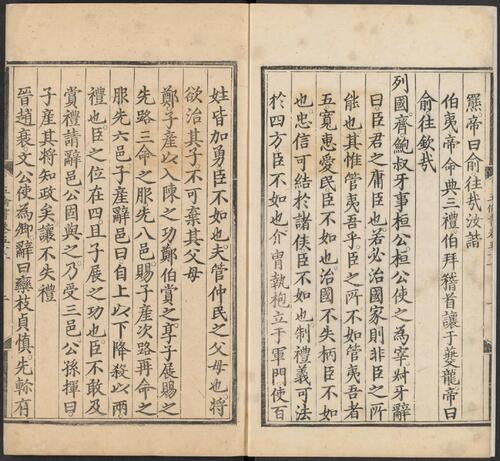 羆帝曰俞往哉汝諧
伯夷帝命典三禮伯拜稽首讓于夔龍帝曰
俞往欽哉
列國齊鮑叔牙事桓公桓公使之為宰叔牙辭
曰臣君之庸臣也若必治國家則非臣之所
能也其惟管夷吾乎臣之所不如管夷吾者
五寬惠愛民臣不如也治國不失柄臣不如
也忠信可結於諸侯臣不如也制禮義可法
於四方臣不如也介冑執枹立于軍門使百
姓皆加勇臣不如也夫管仲民之父母也將
欲治其子不可棄其父母
鄭子產以入陳之功鄭伯賞之享子展賜之
先路三命之服先八邑賜子產次路再命之
服先六邑子產辭邑曰自上以下降殺以兩
禮也臣之位在四且子展之功也臣不敢及
賞禮請辭邑公固與之乃受三邑公孫揮曰
子產其將知政矣讓不失禮
晉趙衰文公使為卿辭曰欒枝貞慎先軫有